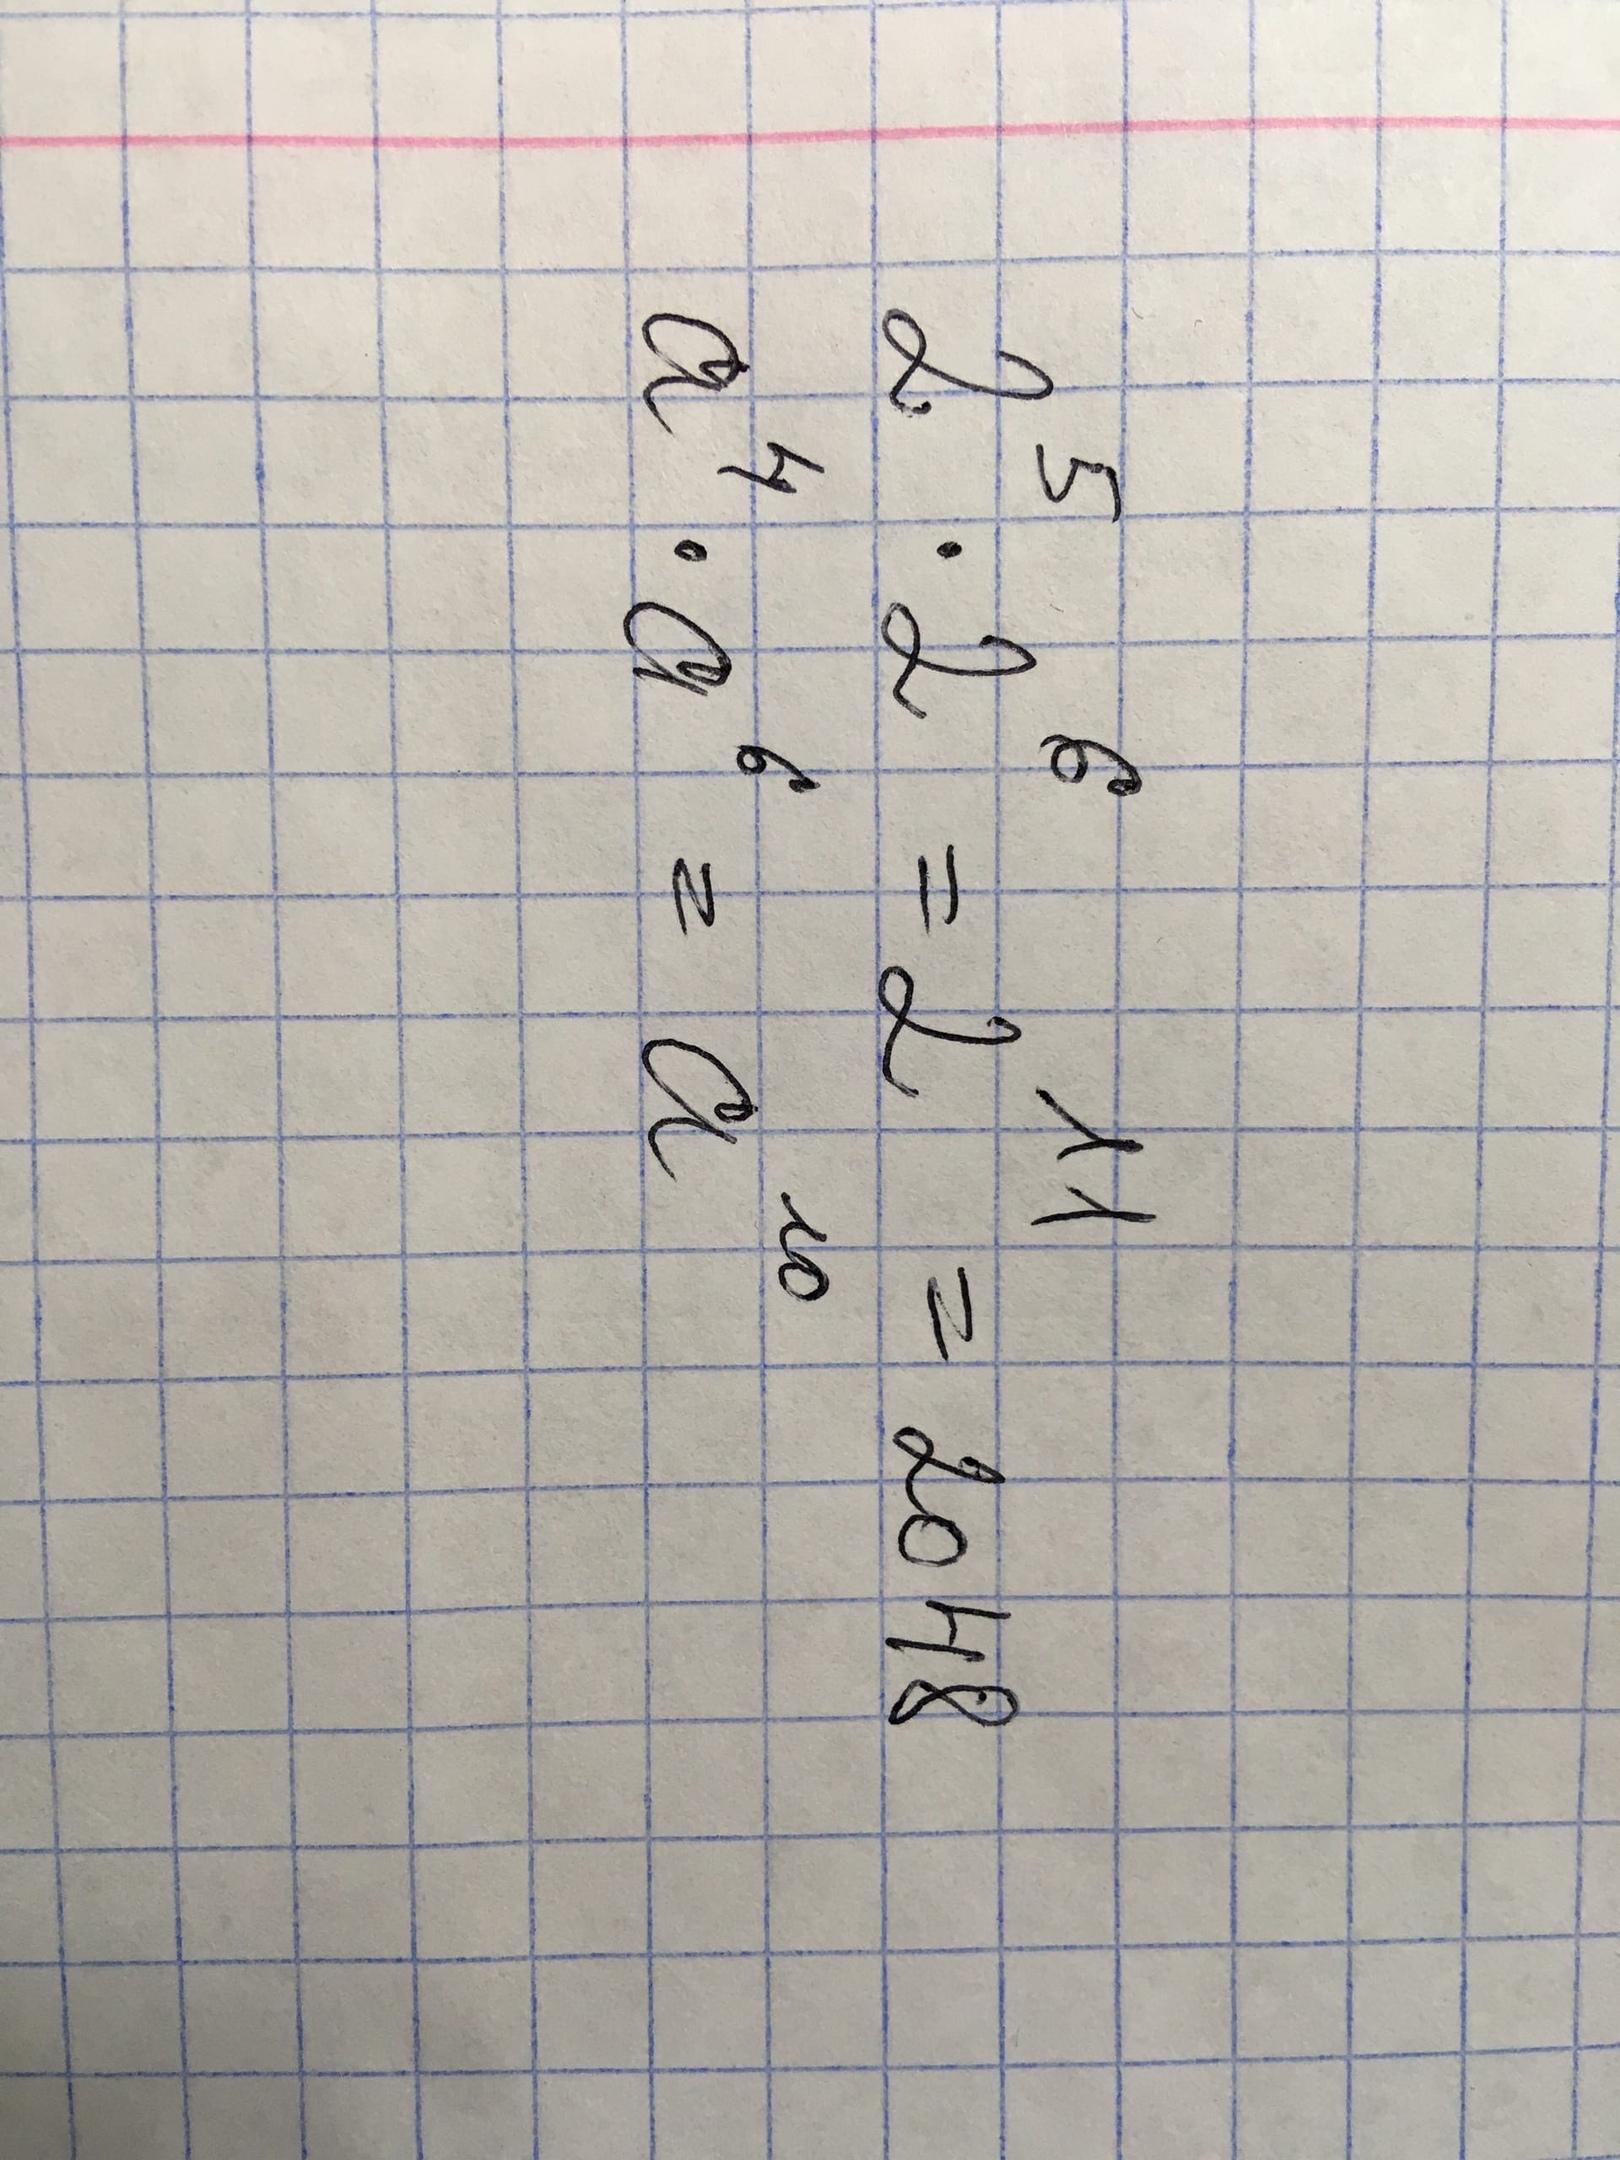 2⁵ · 2⁶ = 2¹¹ = 2048
a⁴ · a⁶ = a¹⁰